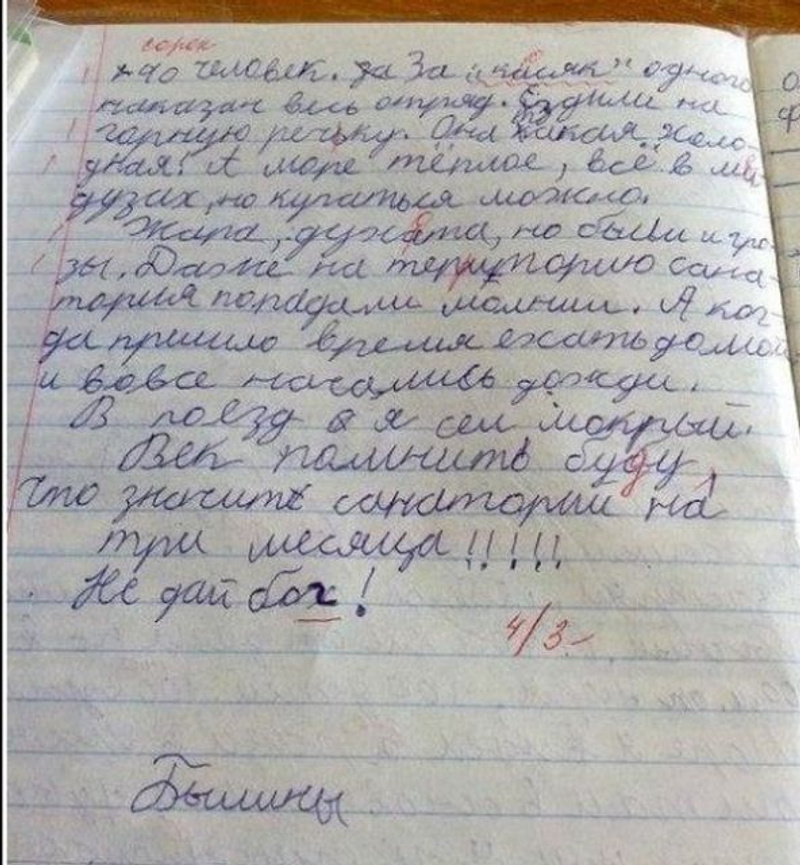 сорок
40 человек. За "касяк" одного
наказан весь отряд. Ездили на
горную речьку. Она такая холо-
дная! А море тёплое, всё в ме-
дузах, но купаться можно.
Жара, духота, но были и гро-
зы. Даже на территорию сана-
тория попадали молнии. А ког-
да пришло время ехать домой
и вовсе начались дожди.
В поезд я сел мокрый.
Век помнить буду,
что значит санаторий на
три месяца!!!!!
Не дай бох!
4/3-
Былины